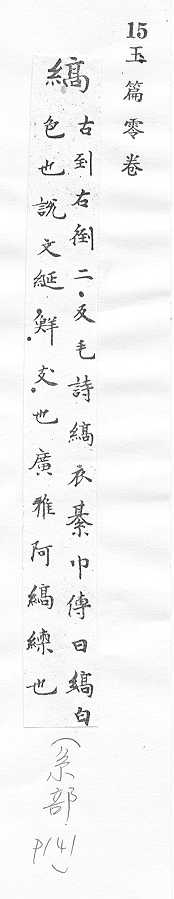 15玉篇零卷
縞
古到右衝二反毛詩縞衣綦巾傳曰縞白
色也說文綎鮮支也廣雅阿縞練也
(糸部
P141)